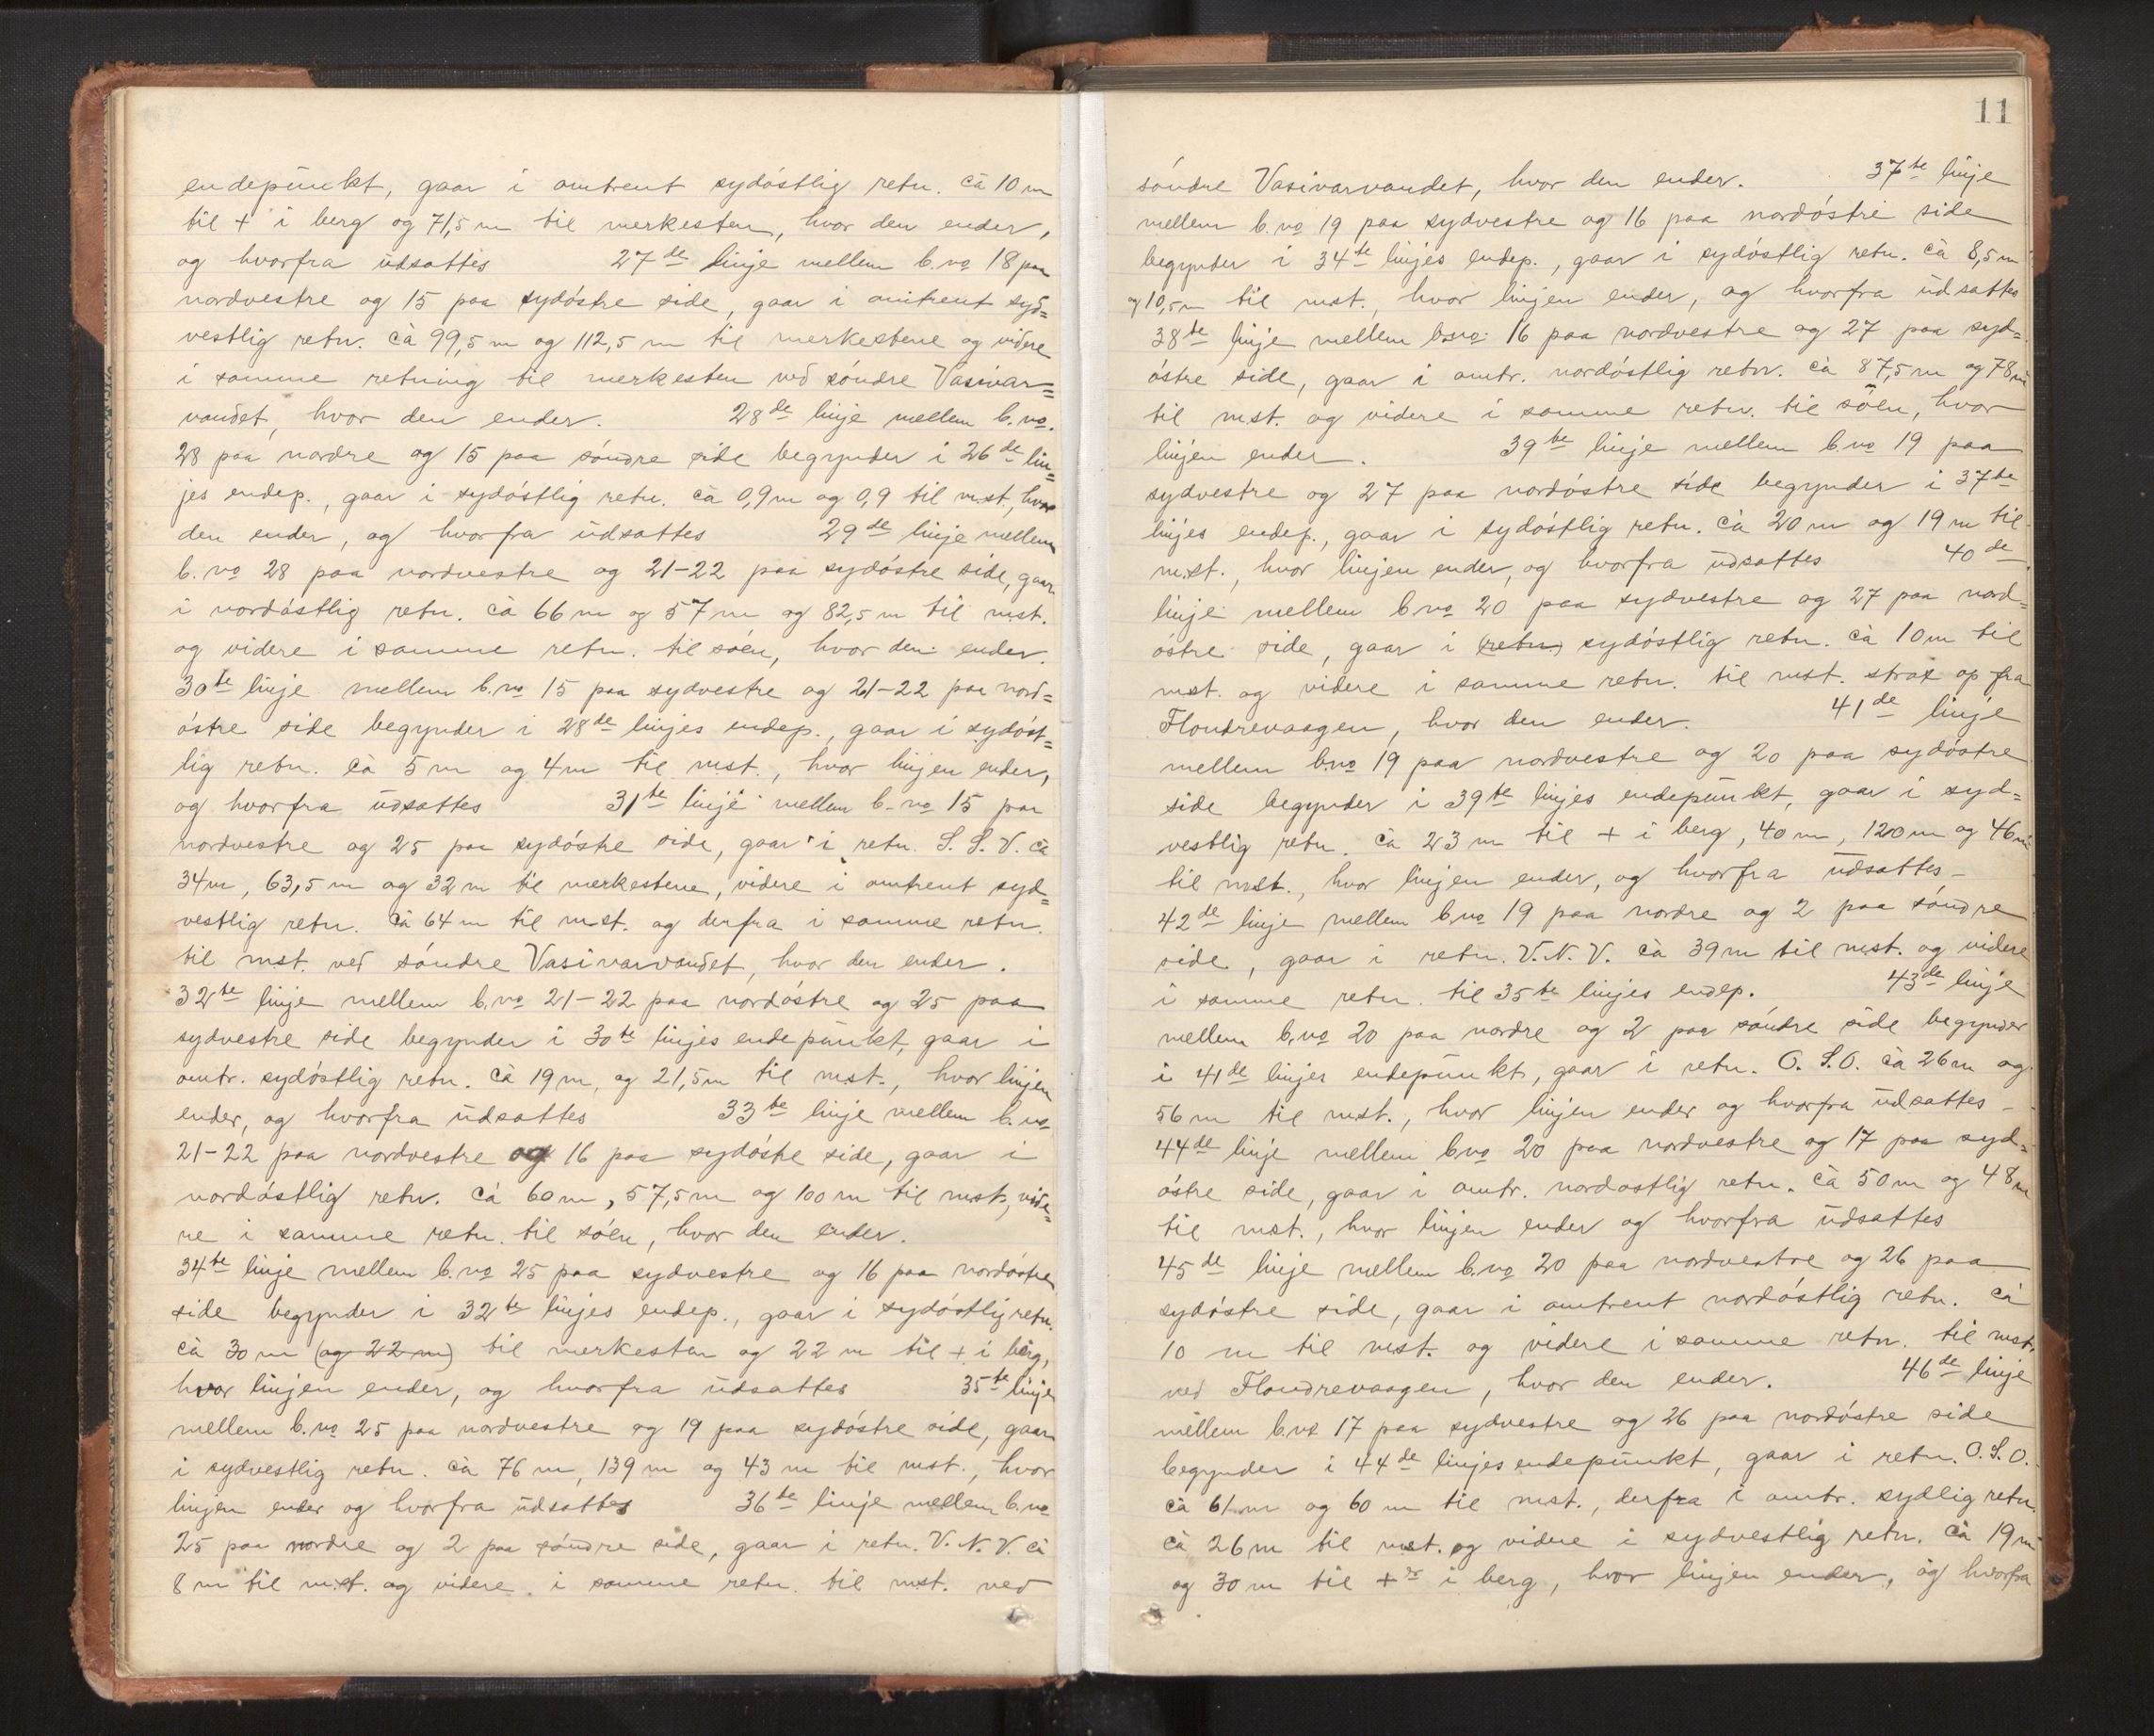 endepunkt, gaar i omtrent sydóstlig retn. cà 10 m
til + i berg og 71,5 m til merkesten, hvor den ender,
og hvorfra udsattes 27de linje mellem b.no 18 paa
nordvestre og 15 paa sydóstre side, gaar i omtrent syd=
vestlig retn. cà 99,5 m og 112,5 m til merkestene og videre
i samme retning til merkesten ved sóndre Vasivar=
vandet, hvor den ender. 28de linje mellem b.no.
28 paa nordre og 15 paa sóndre side begynder i 26de lin=
jes endep., gaar i sydóstlig retn. cà 0,9 m og 0,9 til mst., hvor
den ender, og hvorfra udsattes 29de linje mellem
b.no 28 paa nordvestre og 21-22 paa sydóstre side, gaar
i nordóstlig retn. cà 66 m og 57 m og 82,5 m til mst.
og videre i samme retn. til sóen, hvor den ender.
30te linje mellem b.no 15 paa sydvestre og 21-22 paa nord=
óstre side begynder i 28de linjes endep., gaar i sydóst=
lig retn. cà 5 m og 4 m til mst., hvor linjen ender,
og hvorfra udsattes 31te linje mellem b.no 15 paa
nordvestre og 25 paa sydóstre side, gaar i retn. S. S. V. cà
34 m, 63,5 m og 32 m til merkestene, videre i omtrent syd=
vestlig retn. cà 64 m til mst. og derfra i samme retn.
til mst. ved sóndre Vasivarvandet, hvor den ender.
32te linje mellem b.no 21-22 paa nordóstre og 25 paa
sydvestre side begynder i 30te linjes endepunkt, gaar i
omtr. sydóstlig retn. cà 19 m, og 21,5 m til mst., hvor linjen
ender, og hvorfra udsattes 33te linje mellem b.no
21-22 paa nordvestre og 16 paa sydóstre side, gaar i
nordóstlig retn. cà 60 m, 57,5 m og 100 m til mst., vide=
re i samme retn. til sóen, hvor den ender.
34te linje mellem b.no 25 paa sydvestre og 16 paa nordóstre
side begynder i 32te linjes endep., gaar i sydóstlig retn.
cà 30 m (og 22 m) til merkesten og 22 m til + i berg,
hvor linjen ender, og hvorfra udsattes 35te linje
mellem b.no 25 paa nordvestre og 19 paa sydóstre side, gaar
i sydvestlig retn. cà 76 m, 139 m og 43 m til mst., hvor
linjen ender og hvorfra udsattes 36te linje mellem b.no
25 paa nordre og 2 paa sóndre side, gaar i retn. V. N. V. cà
8 m til mst. og videre i samme retn. til mst. ved
11
sóndre Vasivarvandet, hvor den ender. 37te linje
mellem b.no 19 paa sydvestre og 16 paa nordóstre side
begynder i 34te linjes endep., gaar i sydóstlig retn. cà 8,5 m
og 10,5 m til mst., hvor linjen ender, og hvorfra udsattes
38te linje mellem b.no 16 paa nordvestre og 27 paa syd=
óstre side, gaar i omtr. nordóstlig retn. cà 87,5 m og 78 m
til mst. og videre i samme retn. til sóen, hvor
linjen ender. 39te linje mellem b.no 19 paa
sydvestre og 27 paa nordóstre side begynder i 37te
linjes endep., gaar i sydóstlig retn. cà 20 m og 19 m til
mst., hvor linjen ender, og hvorfra udsattes 40de
linje mellem b.no 20 paa sydvestre og 27 paa nord=
óstre side, gaar i (retn) sydóstlig retn. cà 10 m til
mst. og videre i samme retn. til mst. strax op fra
Flondrevaagen, hvor den ender. 41de linje
mellem b.no 19 paa nordvestre og 20 paa sydóstre
side begynder i 39te linjes endepunkt, gaar i syd=
vestlig retn. cà 23 m til + i berg, 40 m, 120 m og 46 m
til mst., hvor linjen ender, og hvorfra udsattes -
42de linje mellem b.no 19 paa nordre og 2 paa sóndre
side, gaar i retn. V. N. V. cà 39 m til mst. og videre
i samme retn. til 35te linjes endep. 43de linje
mellem b.no 20 paa nordre og 2 paa sóndre side begynder
i 41de linjes endepunkt, gaar i retn. O. S. O. cà 26 m og
56 m til mst., hvor linjen ender og hvorfra udsattes -
44de linje mellem b.no 20 paa nordvestre og 17 paa syd=
óstre side, gaar i omtr. nordostlig retn. cà 50 m og 48 m
til mst., hvor linjen ender og hvorfra udsattes
45de linje mellem b.no 20 paa nordvestre og 26 paa
sydóstre side, gaar i omtrent nordóstlig retn. cà
10 m til mst. og videre i samme retn. til mst.
ved Flondrevaagen, hvor den ender. 46de linje
mellem b.no 17 paa sydvestre og 26 paa nordóstre side
begynder i 44de linjes endepunkt, gaar i retn. O. S. O.
cà 61 m og 60 m til mst., derfra i omtr. sydlig retn.
cà 26 m til mst. og videre i sydvestlig retn. cà 19 m
og 30 m til +er i berg, hvor linjen ender, og hvorfra